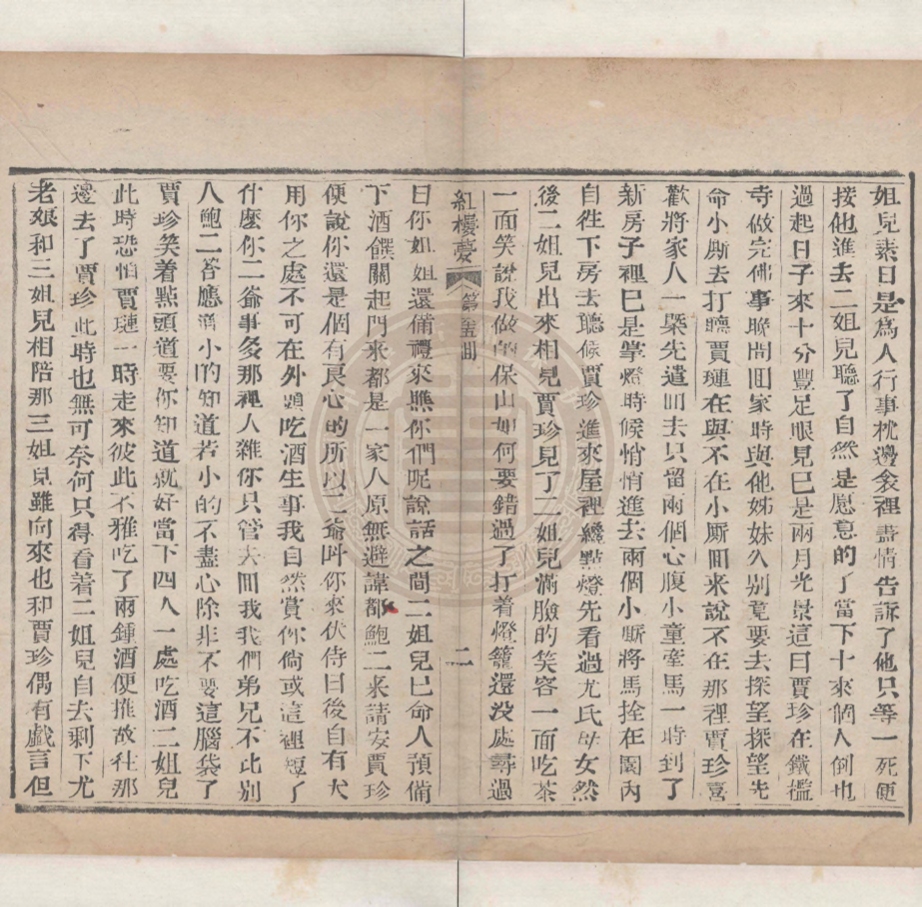 姐兒素日是爲人行事枕邊衾裡盡情告訴了他只等一死便
接他進去二姐兒聽了自然是愿意的了當下十來個人倒也
過起日子來十分豐足眼見已是兩月光景這日賈珍在鐵檻
寺做完佛事晚間囬家時與他姊妹久别竟要去探望探望先
命小厮去打聽賈璉在與不在小厮囬来說不在那裡賈珍喜
歡將家人一槩先遣囬去只留兩個心腹小童牽馬一時到了
新房子裡已是掌燈時候悄悄進去兩個小厮將馬拴在圈内
自徃下房去聽候賈珍進來屋裡纔點燈先看過尤氏母女然
後二姐兒出來相見賈珍見了二姐兒滿臉的笑容一面吃茶
一面笑說我做的保山如何要錯過了打着燈籠還没處尋過
紅樓夢 二
日你姐姐還備禮來瞧你們呢說話之間二姐兒已命人預備
下酒饌關起門来都是一家人原無避諱那鮑二来請安賈珍
便說你還是個有良心的所以二爺呌你來伏侍日後自有大
用你之處不可在外頭吃酒生事我自然賞你倘或這裡短了
什麽你二爺事多那裡人雜你只管去囬我我們弟兄不比别
人鮑二答應道小的知道若小的不盡心除非不要這腦袋了
賈珍笑着點頭道要你知道就好當下四人一處吃酒二姐兒
此時恐怕賈璉一時走來彼此不雅吃了兩鍾酒便推故徃那
邊去了賈珍此時也無可奈何只得看着二姐兒自去剩下尤
老娘和三姐兒相陪那三姐兒雖向來也和賈珍偶有戲言但